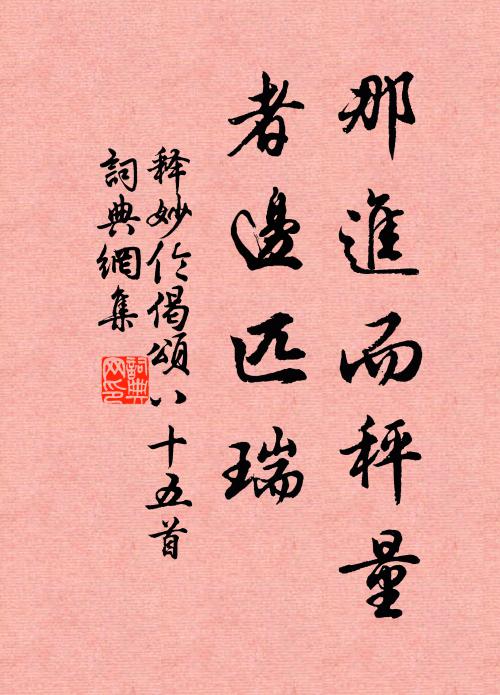 那進而秤量
者邊匹瑞
释妙伦偈頌八十五首
詞典網集
詞典網印